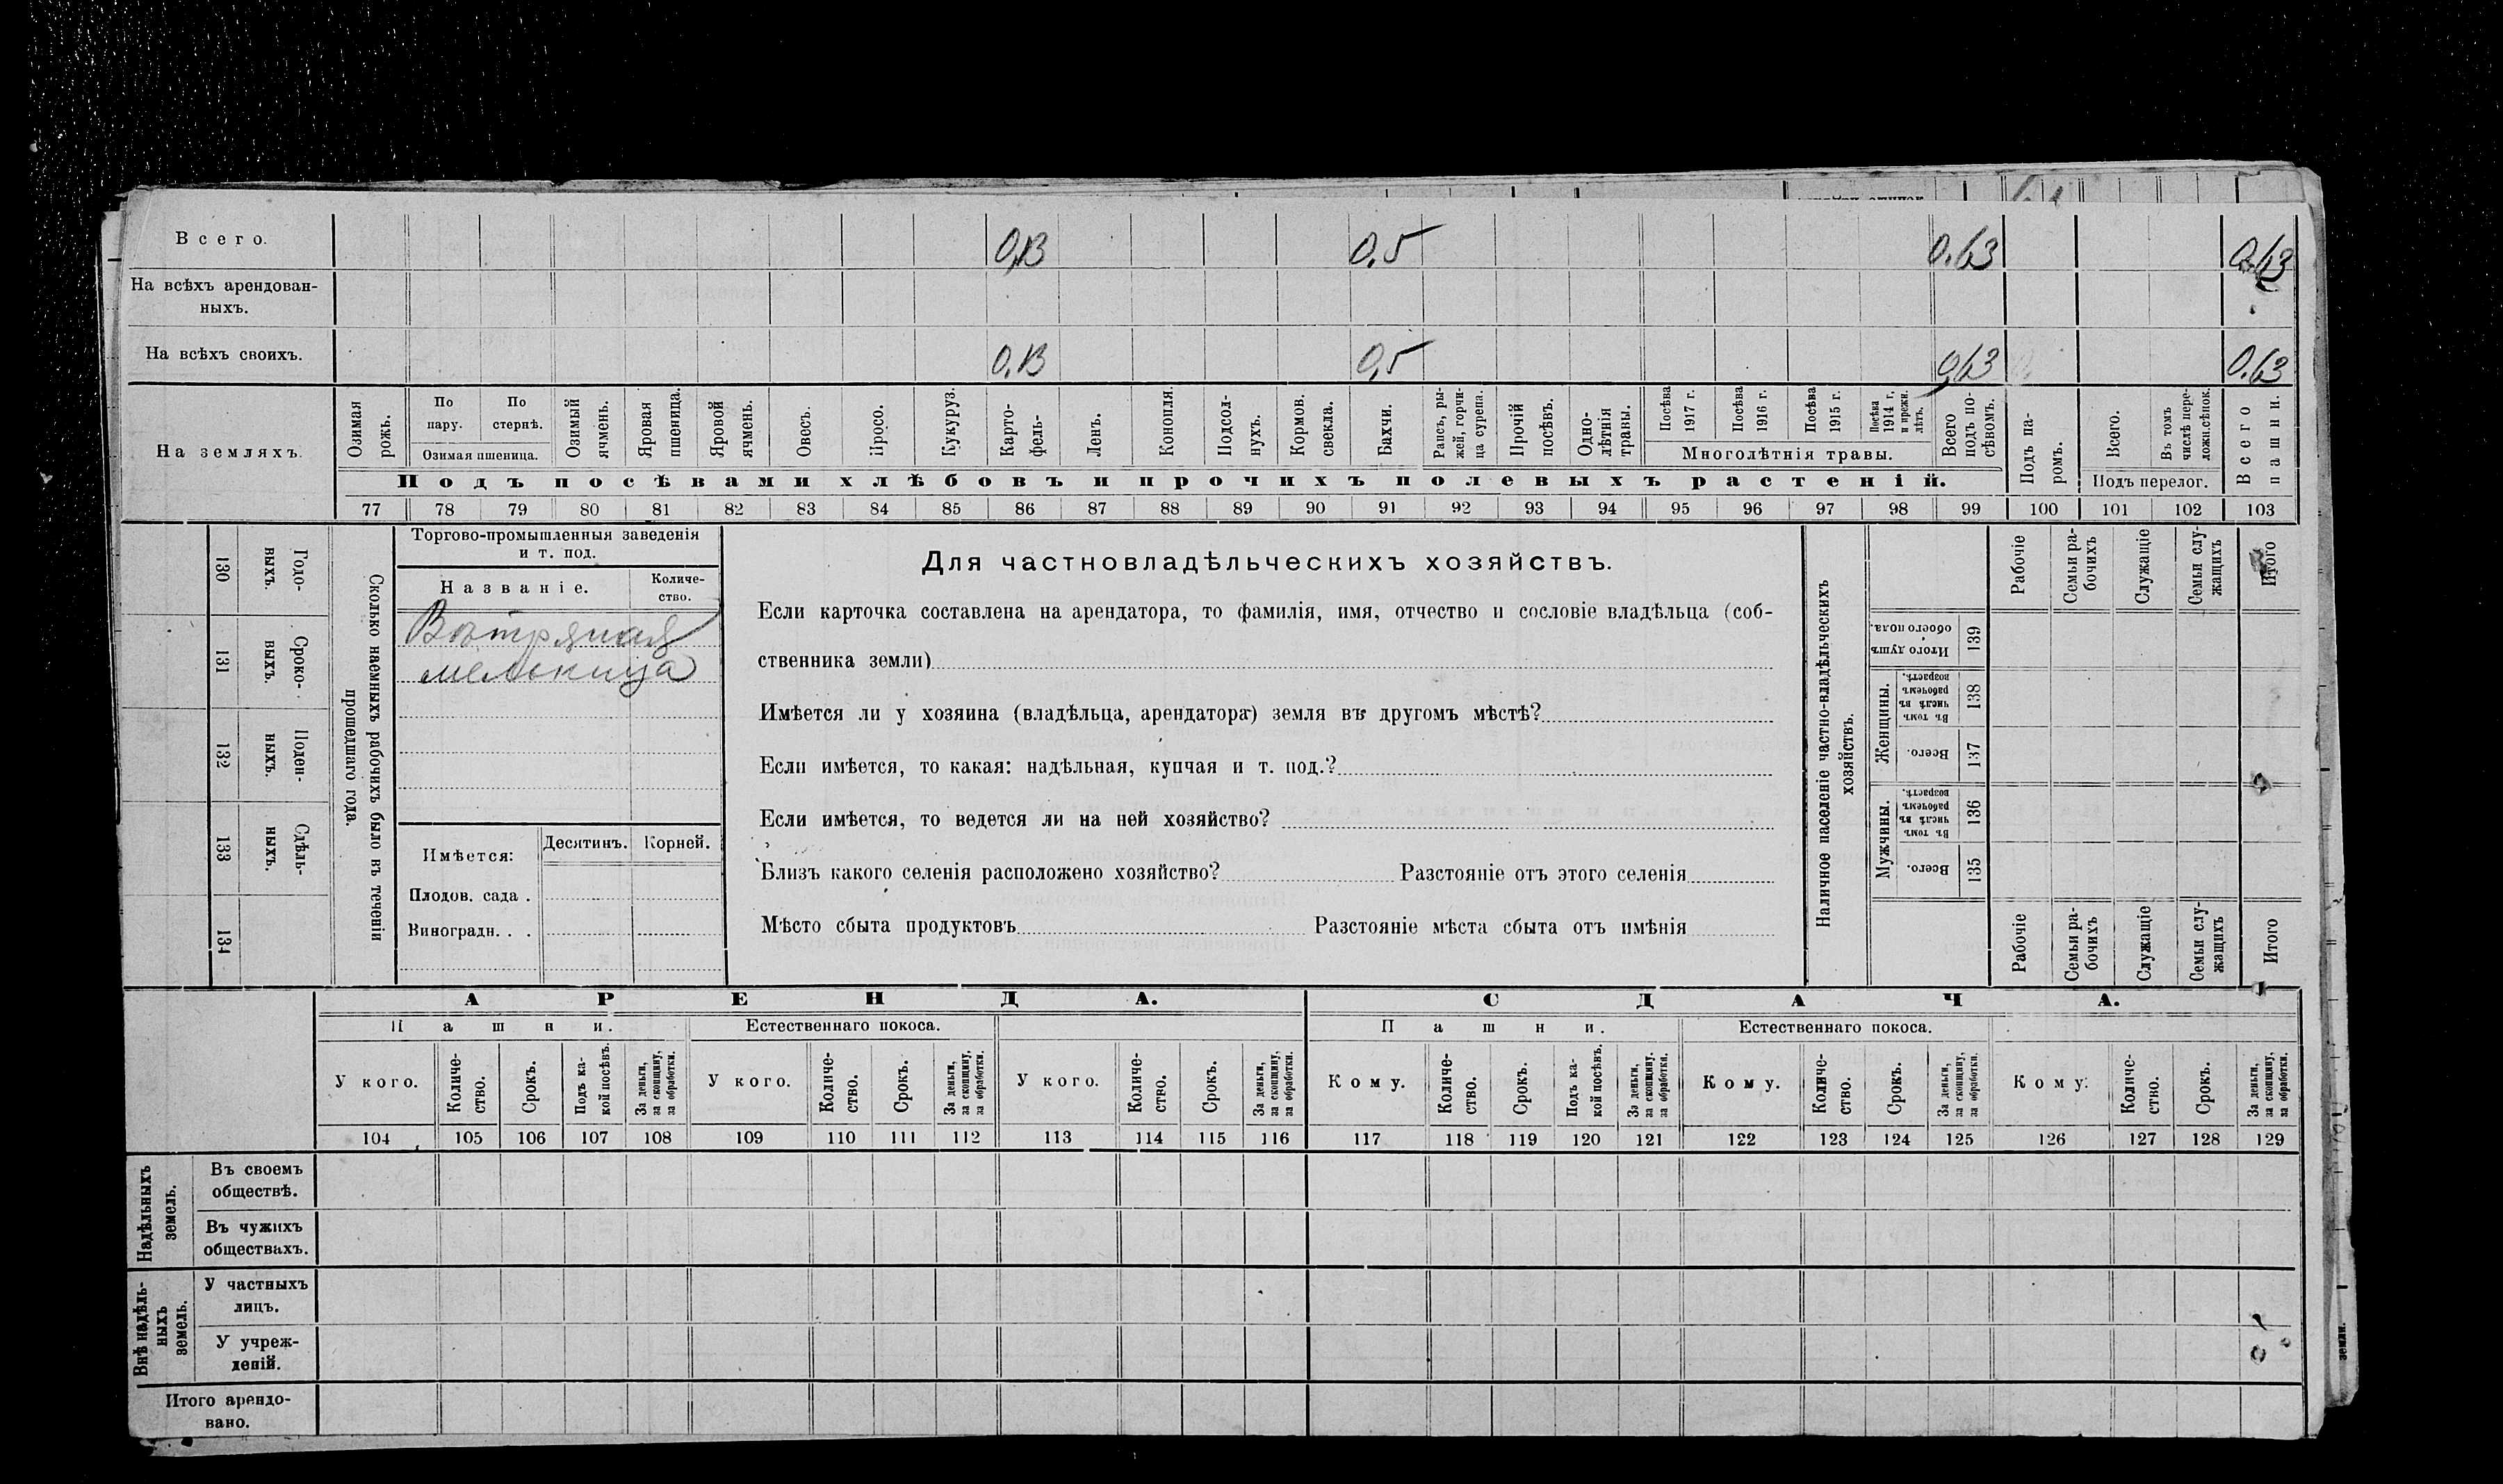 Всего. 0,13 0,5 0.63 0.63
На всѣхъ арендован-
ныхъ.
На всѣхъ своихъ. 0,13 0,5 0,63 0.63
На земляхъ.
Озимая рожь.
По пару.
По стернѣ.
Озимая пшеница.
Озимый ячмень.
Яровая пшеница.
Яровой ячмень.
Овесъ.
Просо.
Кукуруз.
Карто-
фель.
Ленъ.
Конопля.
Подсол-
нухъ.
Кормов. свекла.
Бахчи.
Рапсъ, ры-
жей, горчи-
ца сурепа.
Прочій посѣвъ.
Одно-
лѣтнія травы.
Посѣва 1917 г.
Посѣва 1916 г.
Посѣва 1915 г.
Посѣва 1914 г. и прежн. лѣтъ.
Многолѣтнія травы.
Всего подъ по-
сѣвомъ.
Подъ па-
ромъ.
Всего.
Въ томъ числѣ пере-
ложн.сѣнок.
Подъ перелог.
Всего пашни.
Подъ посѣвами хлѣбовъ и прочихъ полевыхъ растеній.
77 78 79 80 81 82 83 84 85 86 87 88 89 90 91 92 93 94 95 96 97 98 99 100 101 102 103
130 Годо-
выхъ.
131 Сроко-
выхъ.
132 Поден-
ныхъ.
133 Сдѣль-
ныхъ.
134
Сколько наемныхъ рабочихъ было въ теченіи
прошедшаго года.
Торгово-промышленныя заведенія
и т. под.
Названіе. Количе-
ство.
Вѣтряная
мельница
Имѣется: Десятинъ. Корней.
Плодов. сада .
Виноградн. . .
Для частновладѣльческихъ хозяйствъ.
Если карточка составлена на арендатора, то фамилія, имя, отчество и сословіе владѣльца (соб-
ственника земли)
Имѣется ли у хозяина (владѣльца, арендатора) земля въ другомъ мѣстѣ?
Если имѣется, то какая: надѣльная, купчая и т. под.?
Если имѣется, то ведется ли на ней хозяйство?
Близъ какого селенія расположено хозяйство? Разстояніе отъ этого селенія
Мѣсто сбыта продуктовъ Разстояніе мѣста сбыта отъ имѣнія
Наличное населеніе частно-владѣльческихъ
хозяйствъ.
Рабочіе
Семьи ра-
бочихъ
Служащіе
Семьи слу-
жащихъ
Итого
Итого душъ обоего пола. 139
Женщины.
Въ томъ числѣ въ рабочемъ возрастѣ. 138
Всего. 137
Мужчины.
Въ томъ числѣ въ рабочемъ возрастѣ. 136
Всего. 135
Рабочіе
Семьи ра-
бочихъ
Служащіе
Семьи слу-
жащихъ
Итого
АРЕНДА. СДАЧА.
Пашни. Естественнаго покоса. Пашни. Естественнаго покоса.
У кого. Количе-
ство. Срокъ. Подъ ка-
кой посѣвъ. За деньги, за скопщину, за обработки. У кого. Количе-
ство. Срокъ. За деньги, за скопщину, за обработки. У кого. Количе-
ство. Срокъ. За деньги, за скопщину, за обработки. Кому. Количе-
ство. Срокъ. Подъ ка-
кой посѣвъ. За деньги, за скопщину, за обработки. Кому. Количе-
ство. Срокъ. За деньги, за скопщину, за обработки. Кому. Количе-
ство. Срокъ. За деньги, за скопщину, за обработки.
104 105 106 107 108 109 110 111 112 113 114 115 116 117 118 119 120 121 122 123 124 125 126 127 128 129
Надѣльныхъ
земель.
Въ своемъ
обществѣ.
Въ чужихъ
обществахъ.
Внѣ надѣль-
ныхъ
земель.
У частныхъ
лицъ.
У учреж-
деній.
Итого арендо-
вано.
земли.